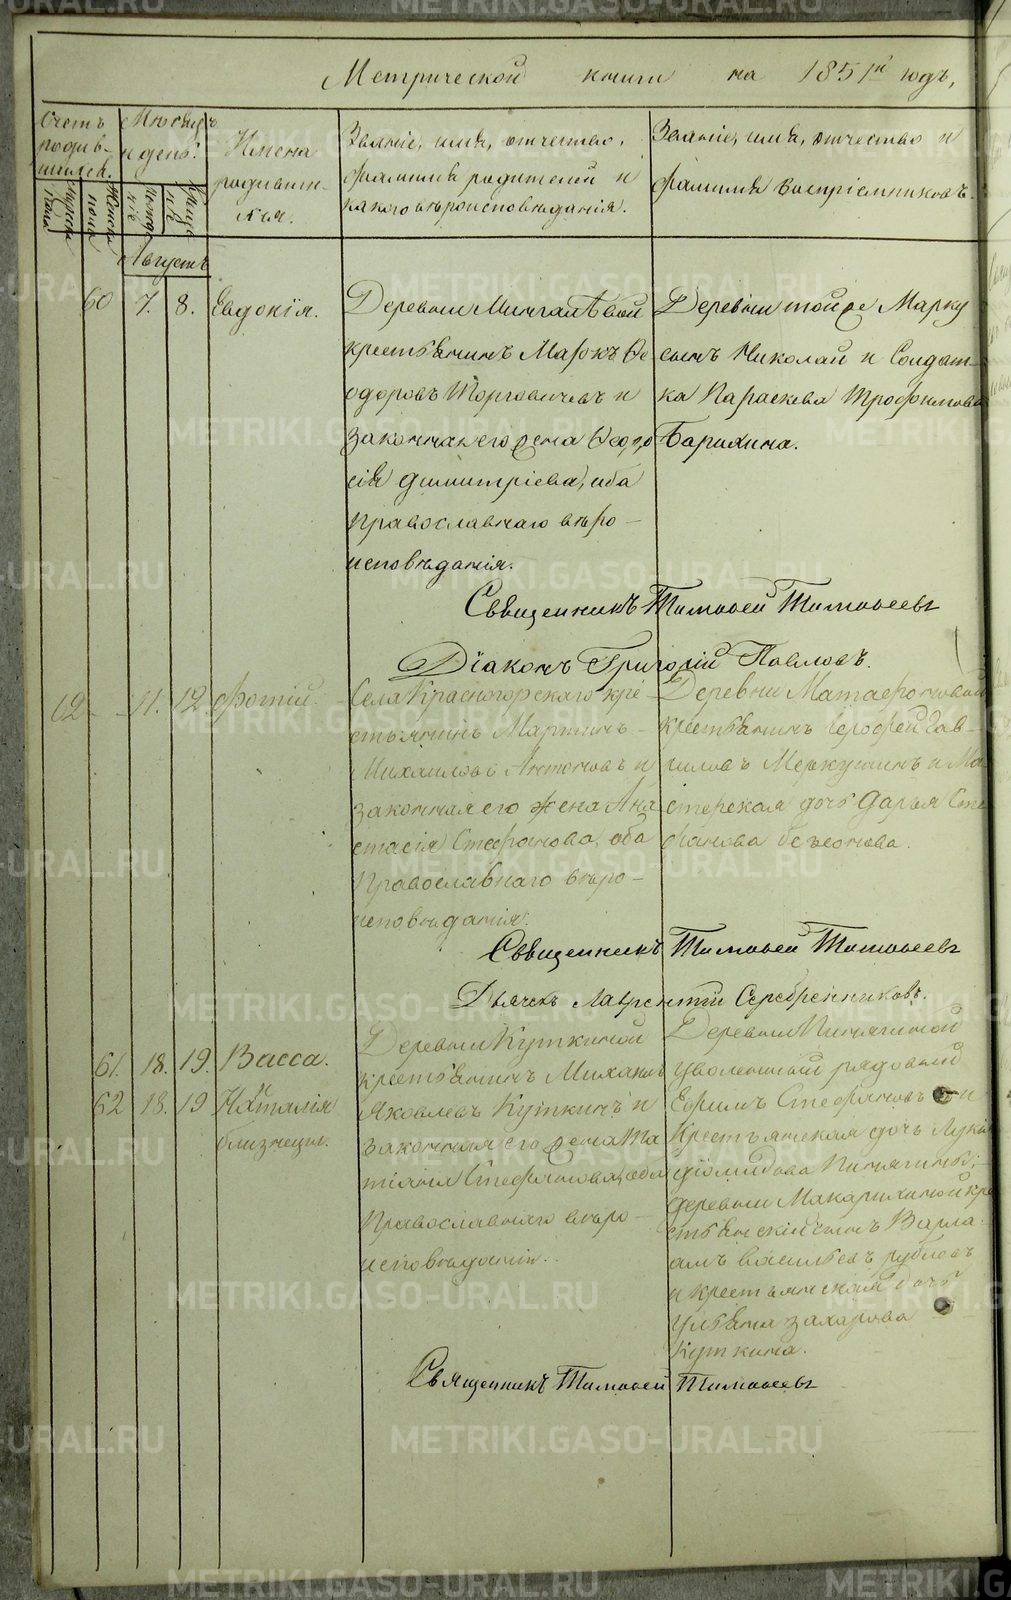 Метрической книги на 1851й годъ,
Счетъ родив-шихся.
Мѣсяцъ и день.
Имена родивших-ся.
Званіе, имя, отчество,
фамилия родителей и
какого вѣроисповѣданія.
Званіе, имя, отчество и
фамилия воспріемниковъ.
Августъ
60 7. 8. Евдокія.
Деревни Мингалѣвой
крестьянинъ Марокъ Ѳе
одоровъ Торговичевъ и
законная его жена Ѳеодо
сія Димитріева, оба
православнаго вѣро-
исповѣданія.
Деревни той же Марку
сынъ Николай и Солдат-
ка Параскева Трофимова
Барихина.
Священникъ Тимоѳей Тимоѳеевъ
Діаконъ Григорій Павловъ.
62 11. 12 Фотій.
Села Красногорскаго кре
стьянинъ Мартинъ
Михаиловъ Антоновъ и
законная его жена Ана
стасія Стефанова, оба
Православнаго вѣро-
исповѣданія.
Деревни Матафоновой
крестьянинъ Ерофей Гав-
риловъ Меркушинъ и Ма
стерская дочь Дарья Сте
фанова
Священникъ Тимоѳей Тимоѳеевъ
Дьячекъ Лаврентій Серебренниковъ.
61. 18. 19. Васса.
62 18. 19 Наталія
близнецы.
Деревни Куткиной
крестьянинъ Михаилъ
Яковлевъ Куткинъ и
законная его жена Та
тіана Стефанова, оба
Православнаго вѣро-
исповѣданія.
Деревни Пинягиной
уволенный рядовый
Ефимъ Стефановъ и
Крестьянская дочь Лукія
Діомидова Пинягины;
деревни Макарихиной кре
стьянскій сынъ Варла
амъ Васильевъ Рубцовъ
и крестьянская дочь
Ульяна Захарова
Куткина.
Священникъ Тимоѳей Тимоѳеевъ
METRIKI.GASO-URAL.RU